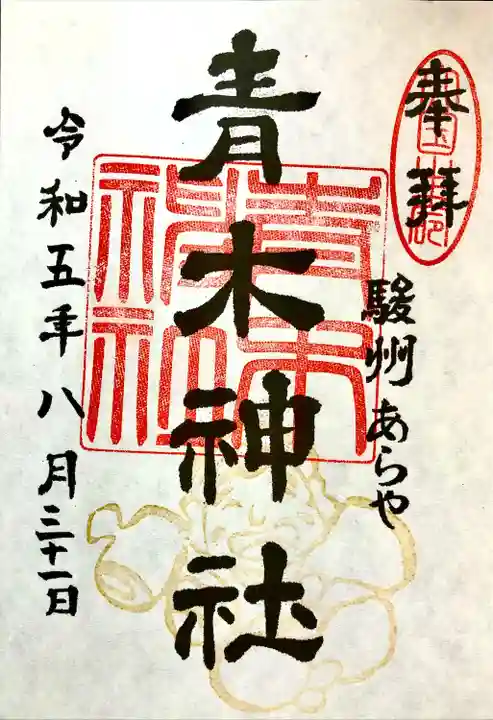 奉拝
駿州あらや
青木神社
青木
神社
令和五年八月三十一日